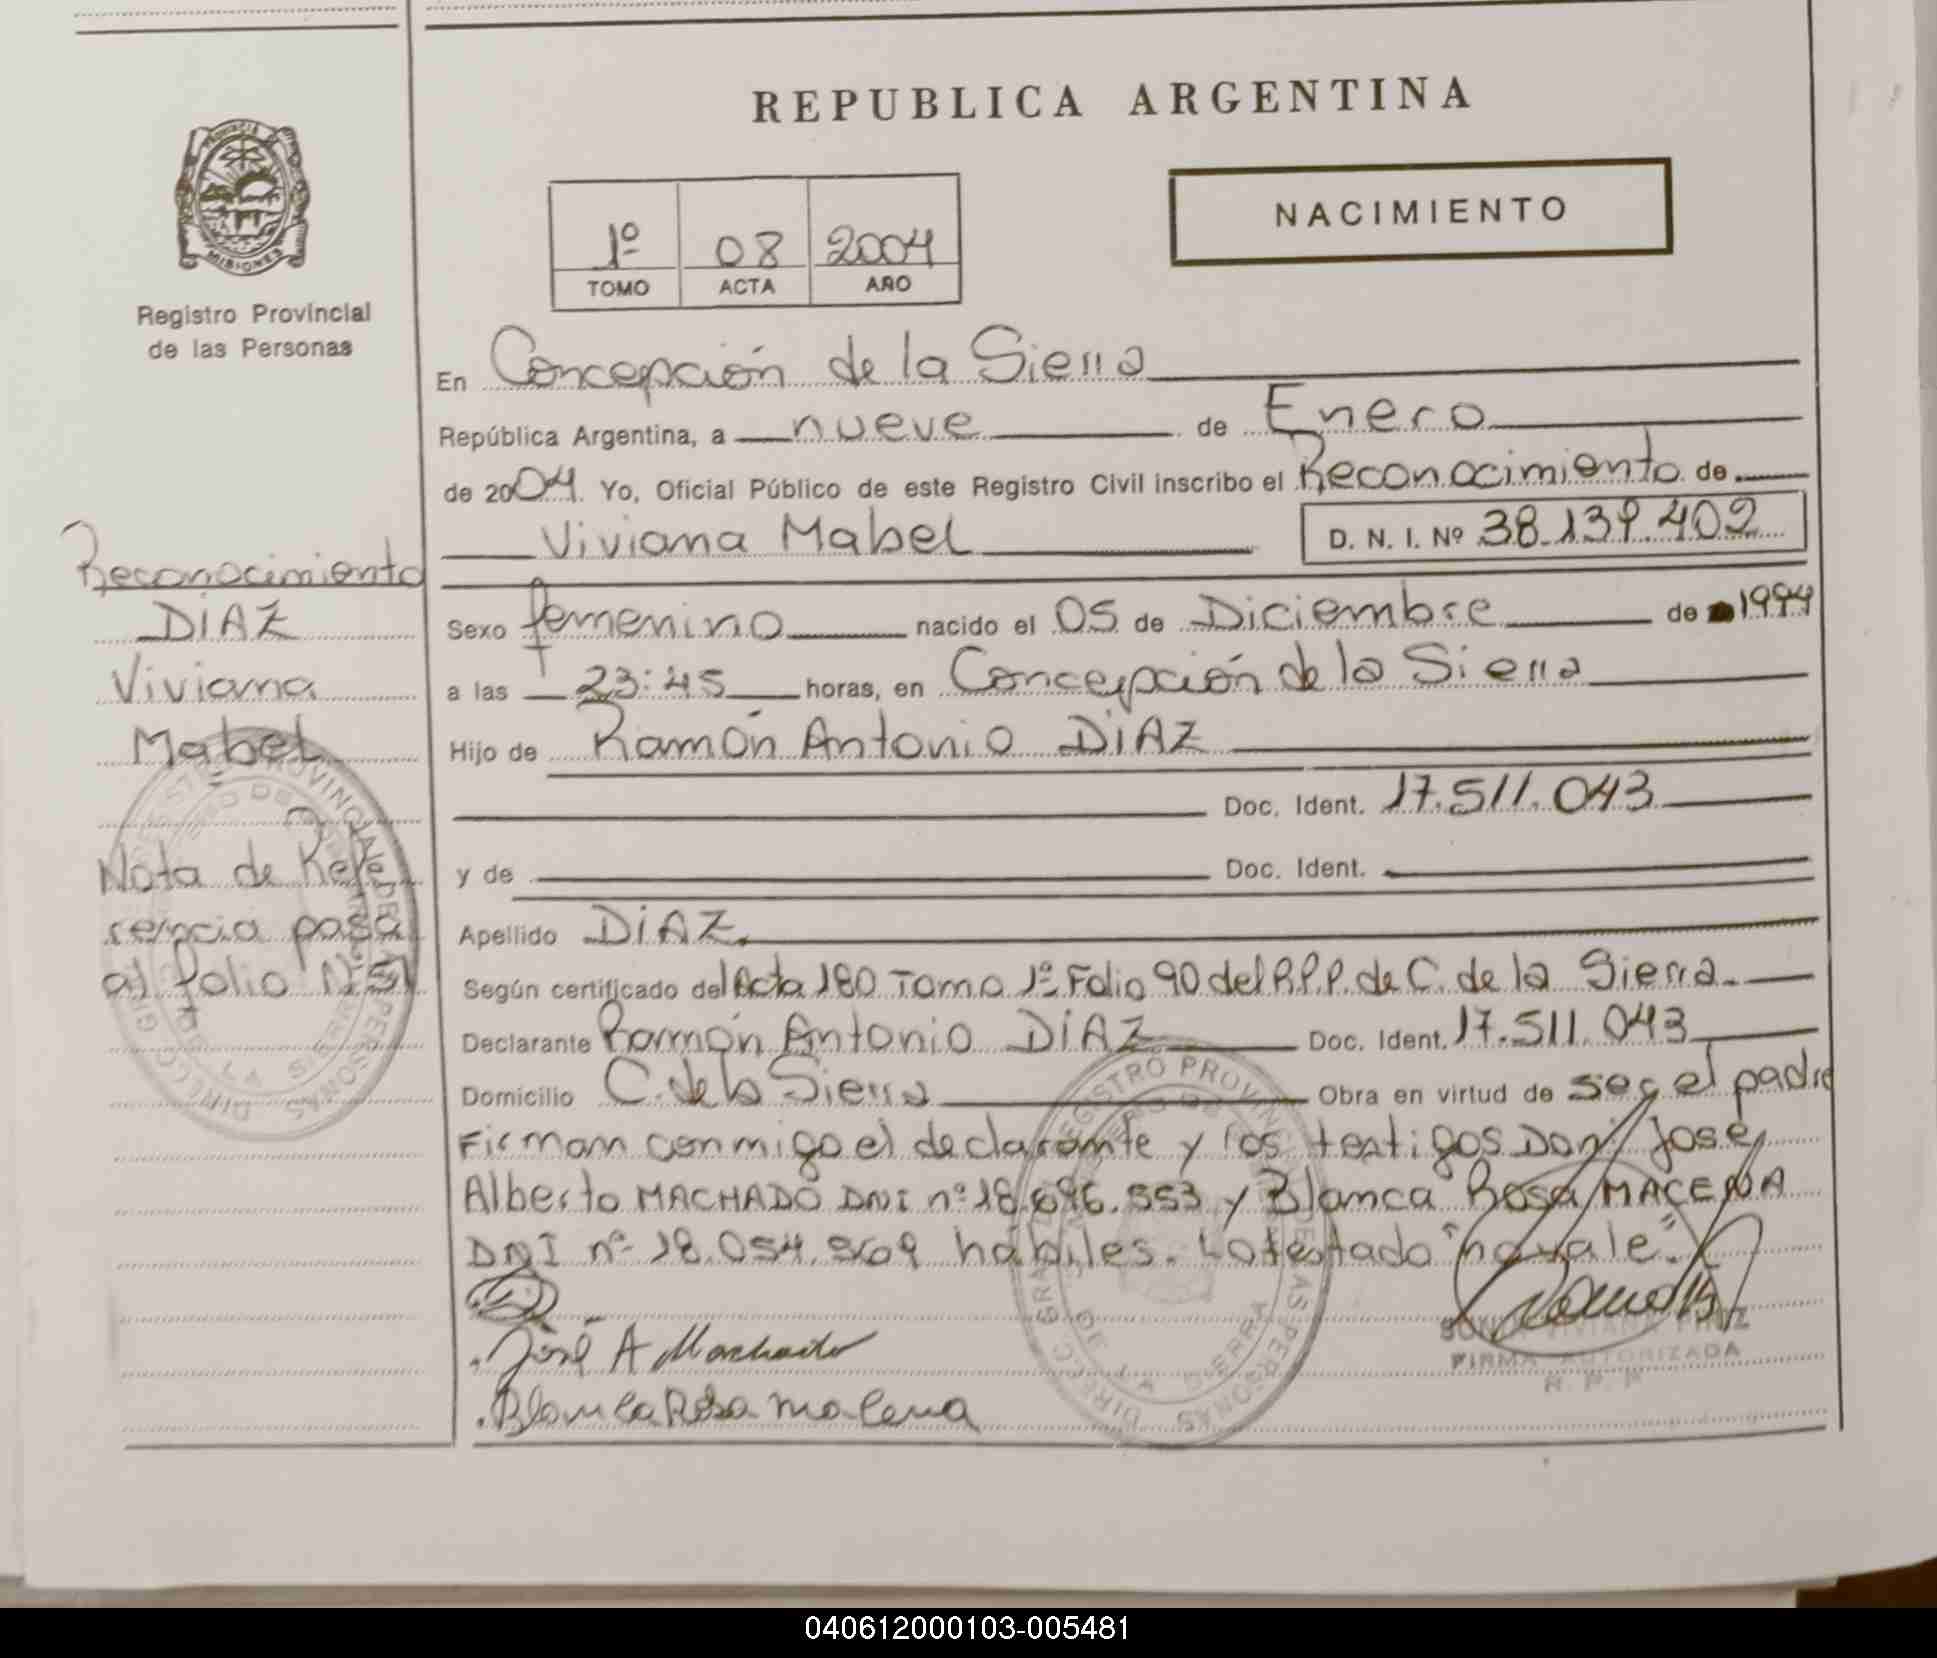 REPUBLICA ARGENTINA
PROVINCIA DE
MISIONES
Registro Provincial
de las Personas
1º 08 2004
TOMO ACTA AÑO
NACIMIENTO
En Concepción de la Sierra
República Argentina, a nueve de Enero
de 2004. Yo, Oficial Público de este Registro Civil inscribo el Reconocimiento de
Viviana Mabel D. N. I. Nº 38.139.402
Sexo femenino nacido el 05 de Diciembre de 1994
a las 23:45 horas, en Concepción de la Sierra
Hijo de Ramón Antonio DIAZ
Doc. Ident. 17.511.043
y de Doc. Ident.
Apellido DIAZ
Según certificado del Acta 180 Tomo 1º Folio 90 del R.P.P. de C. de la Sierra.
Declarante Ramón Antonio DIAZ Doc. Ident. 17.511.043
Domicilio C. de la Sierra Obra en virtud de ser el padre
Firman conmigo el declarante y los testigos Don José
Alberto MACHADO DNI nº 18.696.553 y Blanca Rosa MACENA
DNI nº 18.054.969 habiles. Lo testado "no vale".
José A Machado
Blanca Rosa Macena
FIRMA AUTORIZADA
R. P. P.
Reconocimiento
DIAZ
Viviana
Mabel
Nota de Refe
rencia pasa
al folio Nº 51
REGISTRO PROVINCIAL DE LAS PERSONAS
REGISTRO PROVINCIAL DE LAS PERSONAS
040612000103-005481